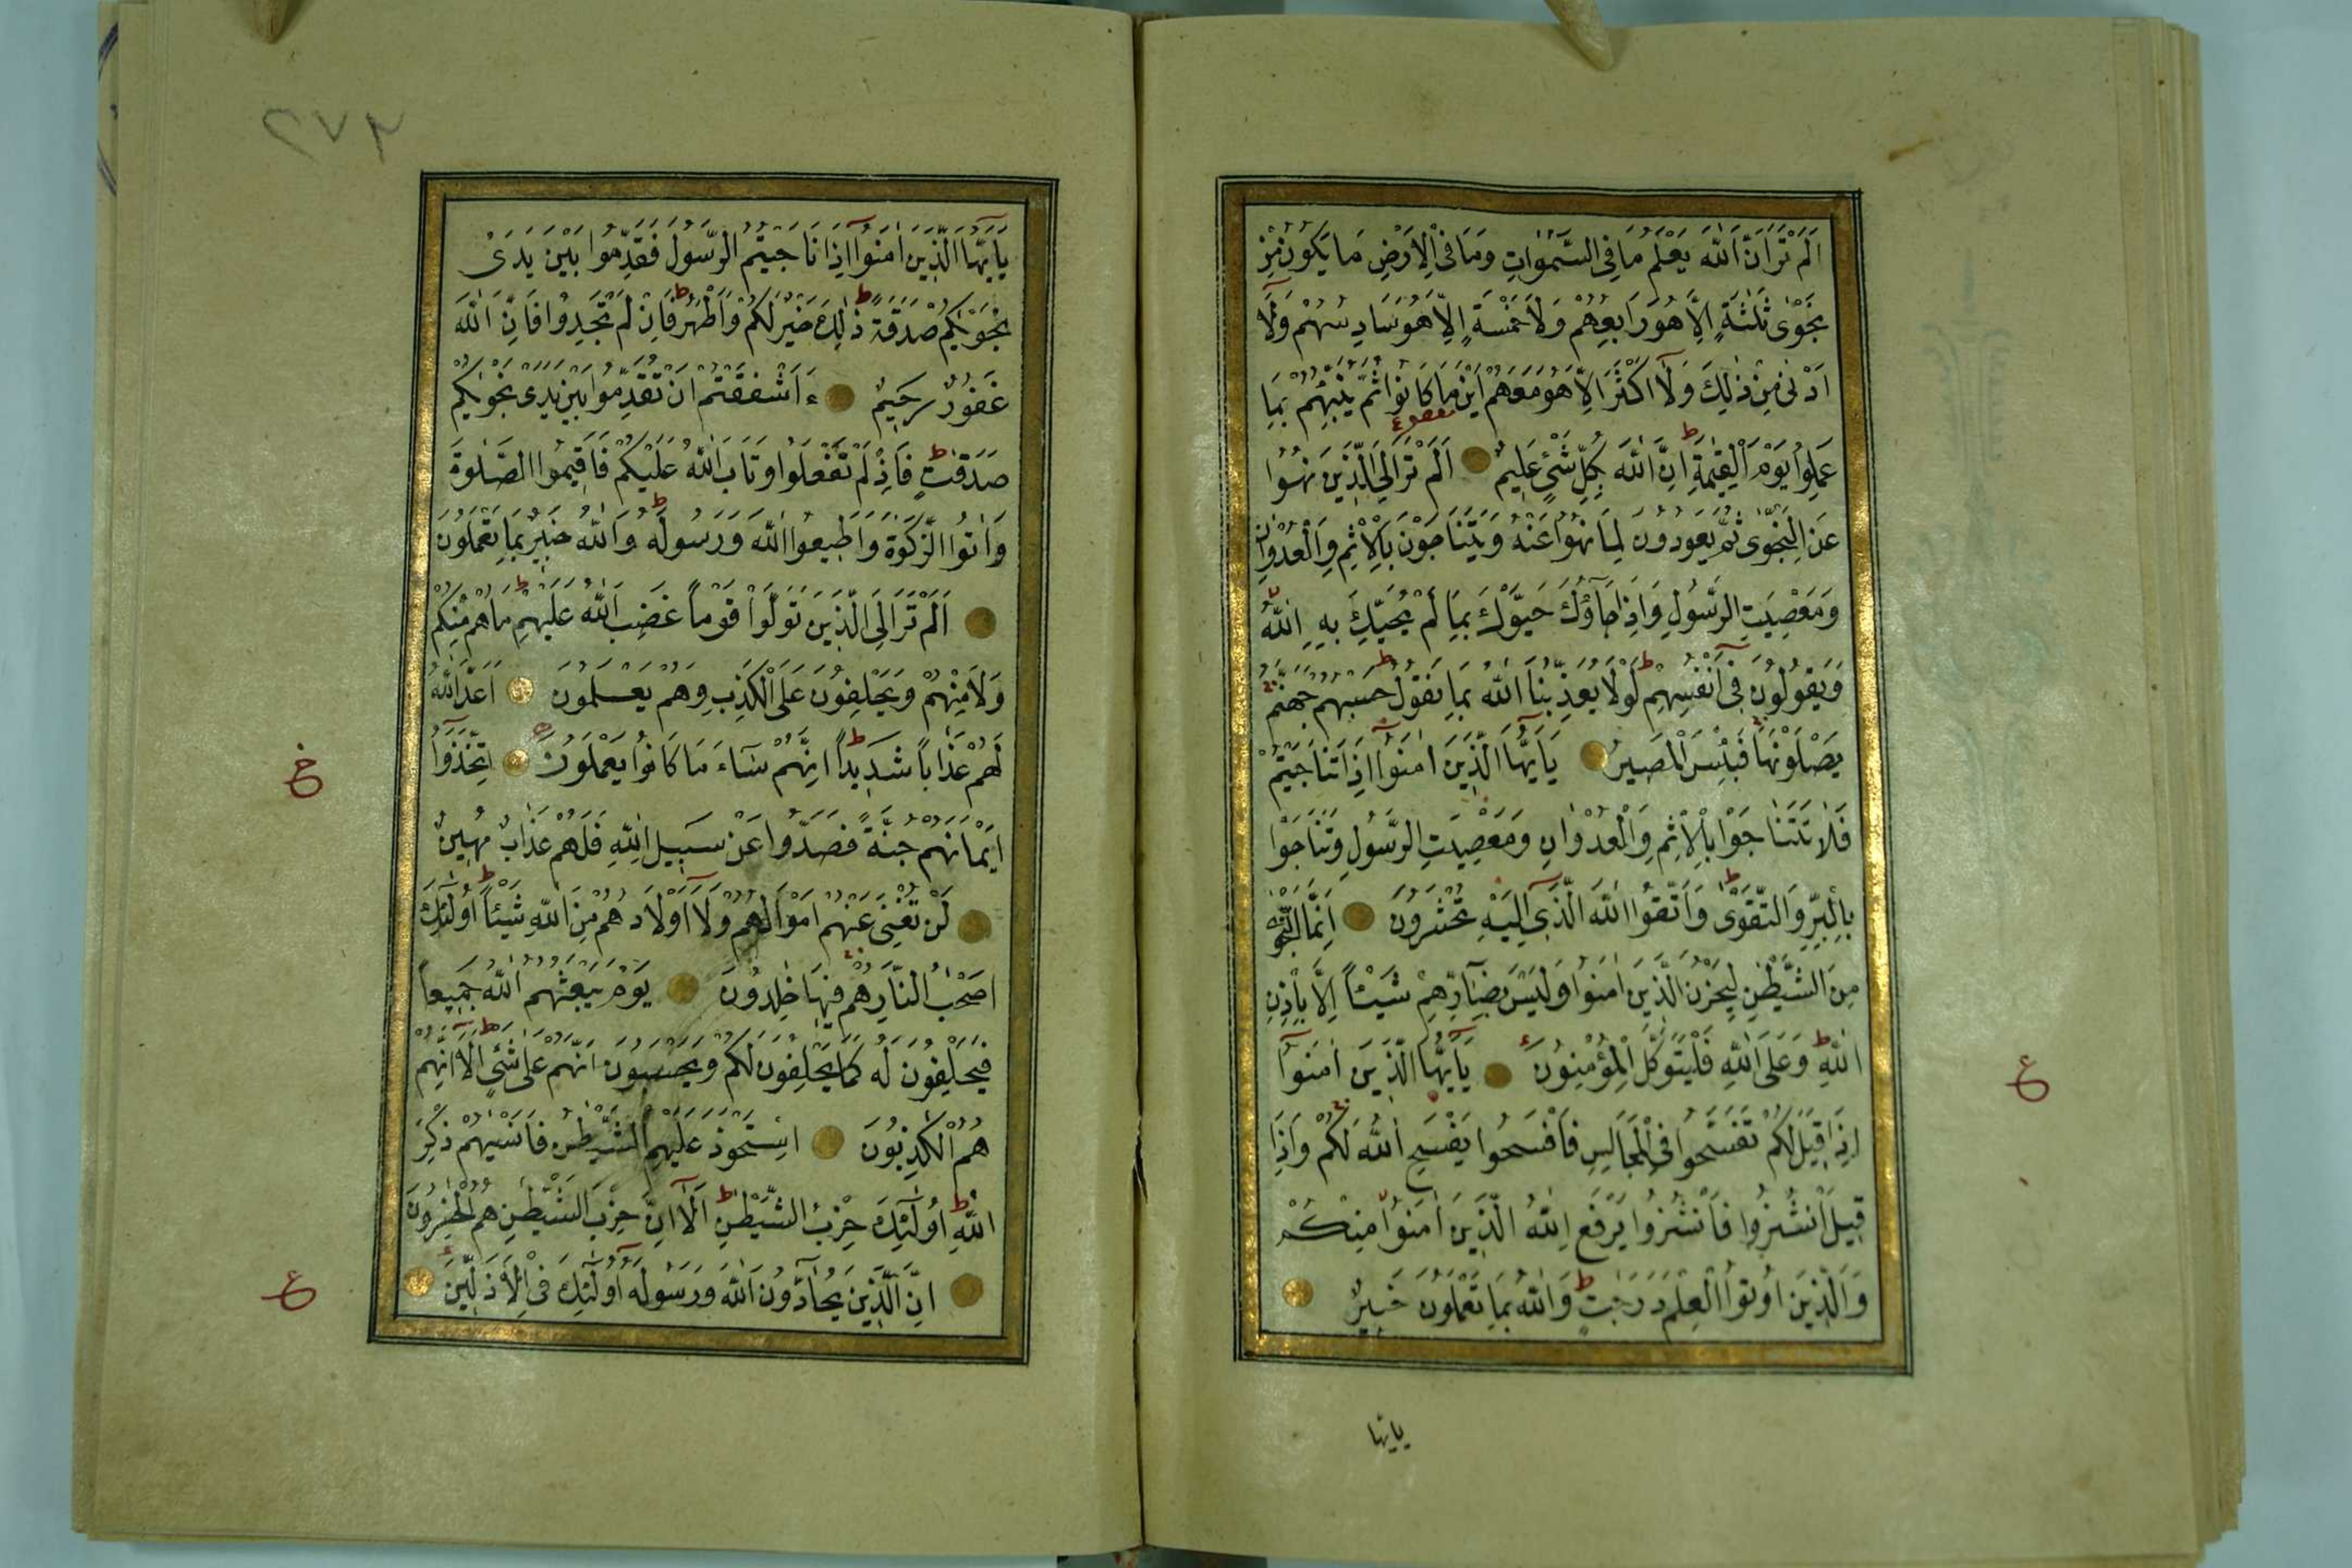 اَلَمْ تَرَ اَنَّ اللّٰهَ يَعْلَمُ مَا فِى السَّمٰوَاتِ وَمَا فِى الْاَرْضِ مَا يَكُونُ مِنْ
نَجْوٰى ثَلٰثَةٍ اِلَّا هُوَ رَابِعُهُمْ وَلَا خَمْسَةٍ اِلَّا هُوَ سَادِسُهُمْ وَلَٓا
اَدْنٰى مِنْ ذٰلِكَ وَلَٓا اَكْثَرَ اِلَّا هُوَ مَعَهُمْ اَيْنَ مَا كَانُوا ثُمَّ يُنَبِّئُهُمْ بِمَا
عَمِلُوا يَوْمَ الْقِيٰمَةِ اِنَّ اللّٰهَ بِكُلِّ شَيْءٍ عَلِيمٌ اَلَمْ تَرَ اِلَى الَّذِينَ نُهُوا
عَنِ النَّجْوٰى ثُمَّ يَعُودُونَ لِمَا نُهُوا عَنْهُ وَيَتَنَاجَوْنَ بِالْاِثْمِ وَالْعُدْوَانِ
وَمَعْصِيَتِ الرَّسُولِ وَاِذَا جَاؤُكَ حَيَّوْكَ بِمَا لَمْ يُحَيِّكَ بِهِ اللّٰهُ
وَيَقُولُونَ فِٓى اَنْفُسِهِمْ لَوْلَا يُعَذِّبُنَا اللّٰهُ بِمَا نَقُولُ حَسْبُهُمْ جَهَنَّمُ
يَصْلَوْنَهَا فَبِئْسَ الْمَصِيرُ يَٓا اَيُّهَا الَّذِينَ اٰمَنُٓوا اِذَا تَنَاجَيْتُمْ
فَلَا تَتَنَاجَوْا بِالْاِثْمِ وَالْعُدْوَانِ وَمَعْصِيَتِ الرَّسُولِ وَتَنَاجَوْا
بِالْبِرِّ وَالتَّقْوٰى وَاتَّقُوا اللّٰهَ الَّذِٓى اِلَيْهِ تُحْشَرُونَ اِنَّمَا النَّجْوٰى
مِنَ الشَّيْطٰنِ لِيَحْزُنَ الَّذِينَ اٰمَنُوا وَلَيْسَ بِضَٓارِّهِمْ شَيْـًٔا اِلَّا بِاِذْنِ
اللّٰهِ وَعَلَى اللّٰهِ فَلْيَتَوَكَّلِ الْمُؤْمِنُونَ يَٓا اَيُّهَا الَّذِينَ اٰمَنُٓوا
اِذَا قِيلَ لَكُمْ تَفَسَّحُوا فِى الْمَجَالِسِ فَافْسَحُوا يَفْسَحِ اللّٰهُ لَكُمْ وَاِذَا
قِيلَ انْشُزُوا فَانْشُزُوا يَرْفَعِ اللّٰهُ الَّذِينَ اٰمَنُوا مِنْكُمْ
وَالَّذِينَ اُوتُوا الْعِلْمَ دَرَجَاتٍ وَاللّٰهُ بِمَا تَعْمَلُونَ خَبِيرٌ
ع
يايها
٢٧٣
يَٓا اَيُّهَا الَّذِينَ اٰمَنُٓوا اِذَا نَاجَيْتُمُ الرَّسُولَ فَقَدِّمُوا بَيْنَ يَدَىْ
نَجْوٰيكُمْ صَدَقَةً ذٰلِكَ خَيْرٌ لَكُمْ وَاَطْهَرُ فَاِنْ لَمْ تَجِدُوا فَاِنَّ اللّٰهَ
غَفُورٌ رَحِيمٌ ءَاَشْفَقْتُمْ اَنْ تُقَدِّمُوا بَيْنَ يَدَىْ نَجْوٰيكُمْ
صَدَقَاتٍ فَاِذْ لَمْ تَفْعَلُوا وَتَابَ اللّٰهُ عَلَيْكُمْ فَاَقِيمُوا الصَّلٰوةَ
وَاٰتُوا الزَّكٰوةَ وَاَطِيعُوا اللّٰهَ وَرَسُولَهُ وَاللّٰهُ خَبِيرٌ بِمَا تَعْمَلُونَ
اَلَمْ تَرَ اِلَى الَّذِينَ تَوَلَّوْا قَوْماً غَضِبَ اللّٰهُ عَلَيْهِمْ مَا هُمْ مِنْكُمْ
وَلَا مِنْهُمْ وَيَحْلِفُونَ عَلَى الْكَذِبِ وَهُمْ يَعْلَمُونَ اَعَدَّ اللّٰهُ
لَهُمْ عَذَاباً شَدِيداً اِنَّهُمْ سَٓاءَ مَا كَانُوا يَعْمَلُونَ اِتَّخَذُٓوا
اَيْمَانَهُمْ جُنَّةً فَصَدُّوا عَنْ سَبِيلِ اللّٰهِ فَلَهُمْ عَذَابٌ مُهِينٌ
لَنْ تُغْنِىَ عَنْهُمْ اَمْوَالُهُمْ وَلَٓا اَوْلَادُهُمْ مِنَ اللّٰهِ شَيْـًٔا اُولٰٓئِكَ
اَصْحٰبُ النَّارِ هُمْ فِيهَا خٰلِدُونَ يَوْمَ يَبْعَثُهُمُ اللّٰهُ جَمِيعاً
فَيَحْلِفُونَ لَهُ كَمَا يَحْلِفُونَ لَكُمْ وَيَحْسَبُونَ اَنَّهُمْ عَلٰى شَيْءٍ اَلَٓا اِنَّهُمْ
هُمُ الْكٰذِبُونَ اِسْتَحْوَذَ عَلَيْهِمُ الشَّيْطٰنُ فَاَنْسٰيهُمْ ذِكْرَ
اللّٰهِ اُولٰٓئِكَ حِزْبُ الشَّيْطٰنِ اَلَٓا اِنَّ حِزْبَ الشَّيْطٰنِ هُمُ الْخٰسِرُونَ
اِنَّ الَّذِينَ يُحَٓادُّونَ اللّٰهَ وَرَسُولَهُ اُولٰٓئِكَ فِى الْاَذَلِّينَ
ع